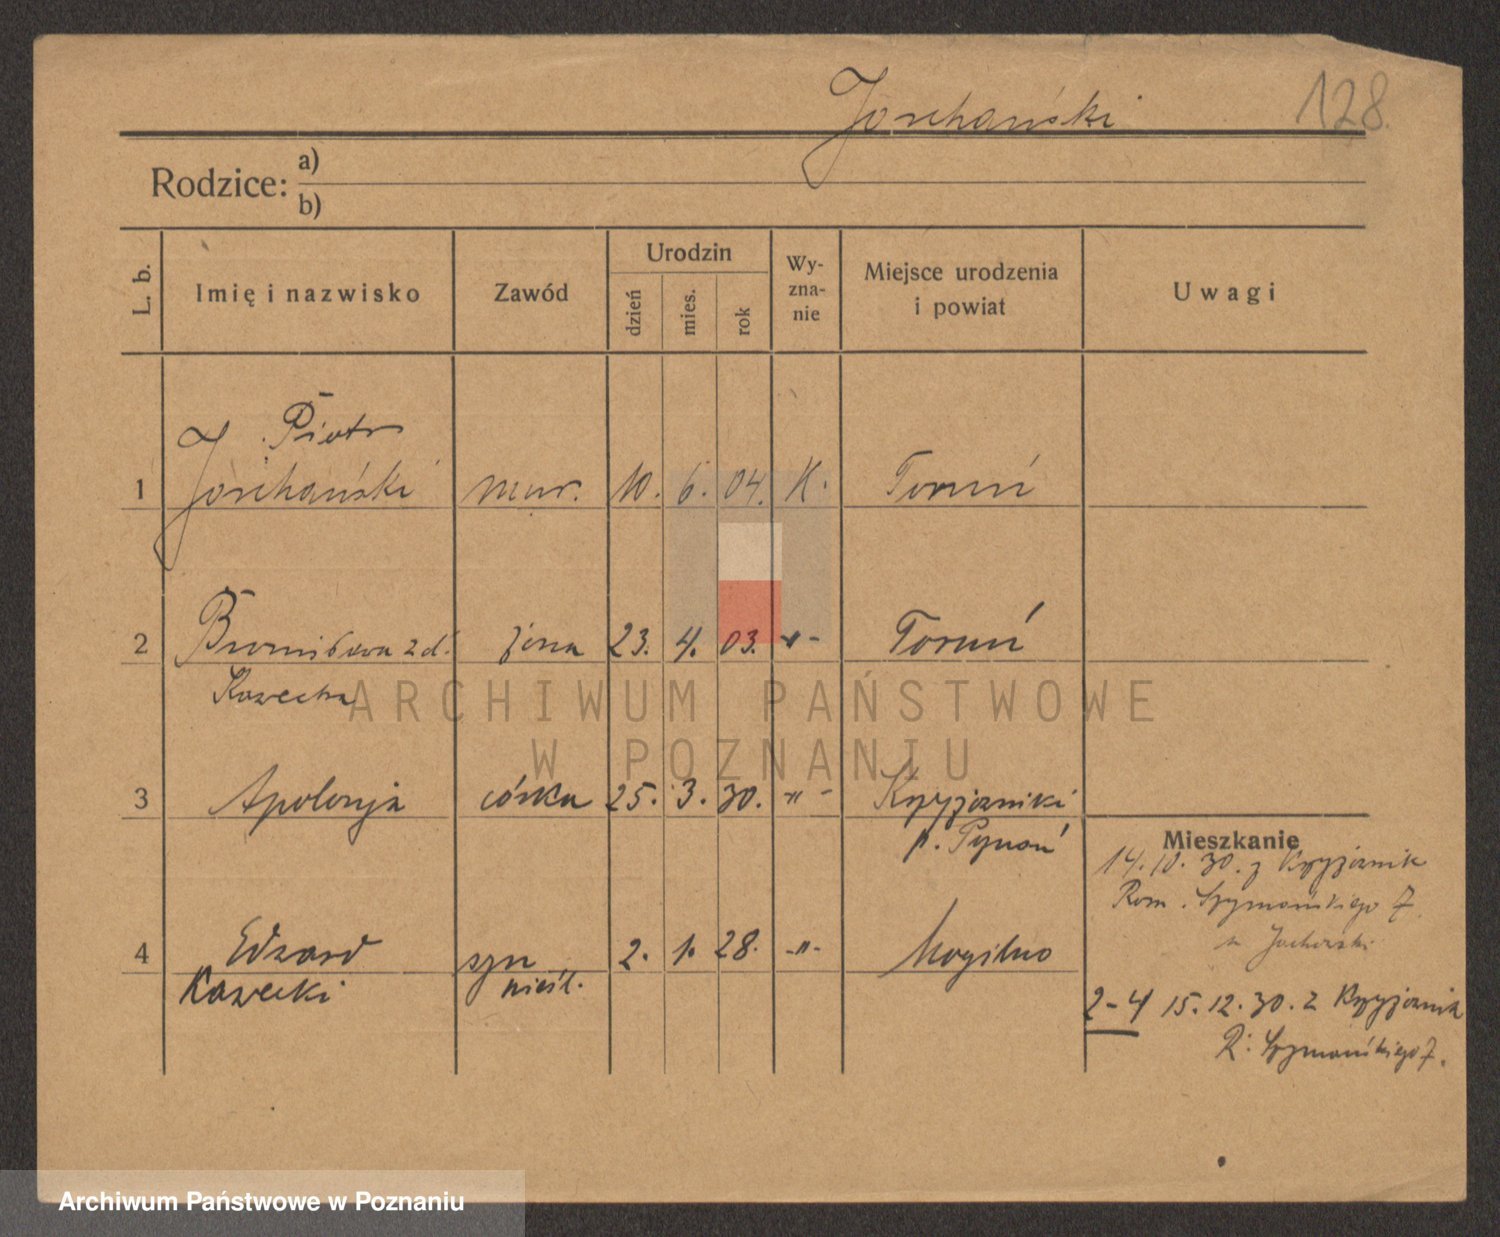 Jorchański 128.
Rodzice: a)
b)
L. b. Imię i nazwisko Zawód Urodzin dzień mies. rok Wy-zna-nie Miejsce urodzenia i powiat Uwagi
Piotr
1 Jorchański mur. 10. 6. 04. K. Toruń
2 Bronisława zd. żona 23. 4. 03. -"- Toruń
Kawecka
ARCHIWUM PAŃSTWOWE
W POZNANIU
3 Apolonja córka 25. 3. 30. -"- Krzyżowniki
p. Poznań
Mieszkanie
14.10.30. z Krzyżownik
Rom. Szymańskiego 7
u
4 Edward syn 2. 1. 28. -"- Mogilno
Kawecki nieśl.
2-4 15.12.30. z Krzyżownik
R. Szymańskiego 7.
Archiwum Państwowe w Poznaniu